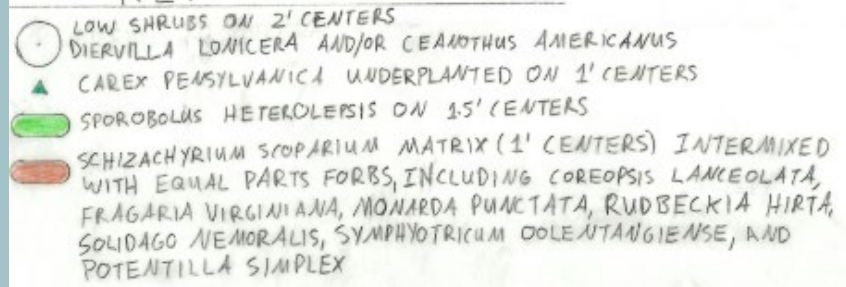 LOW SHRUBS ON 2' CENTERS
DIERVILLA LONICERA AND/OR CEANOTHUS AMERICANUS
CAREX PENSYLVANICA UNDERPLANTED ON 1' CENTERS
SPOROBOLUS HETEROLEPSIS ON 1.5' CENTERS
SCHIZACHYRIUM SCOPARIUM MATRIX (1' CENTERS) INTERMIXED
WITH EQUAL PARTS FORBS, INCLUDING COREOPSIS LANCEOLATA,
FRAGARIA VIRGINIANA, MONARDA PUNCTATA, RUDBECKIA HIRTA,
SOLIDAGO NEMORALIS, SYMPHYOTRICUM OOLENTANGIENSE, AND
POTENTILLA SIMPLEX